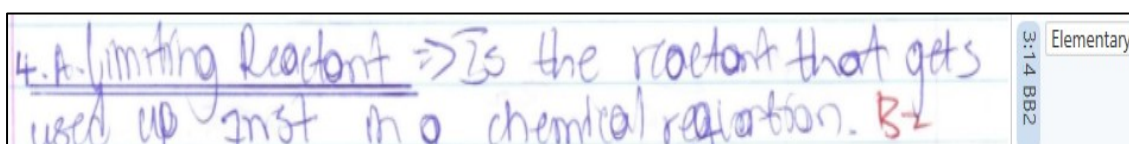 4. A. Limiting Reactant => Is the reactant that gets
used up in a chemical reaction. B-2
3:14 BB2
Elementary